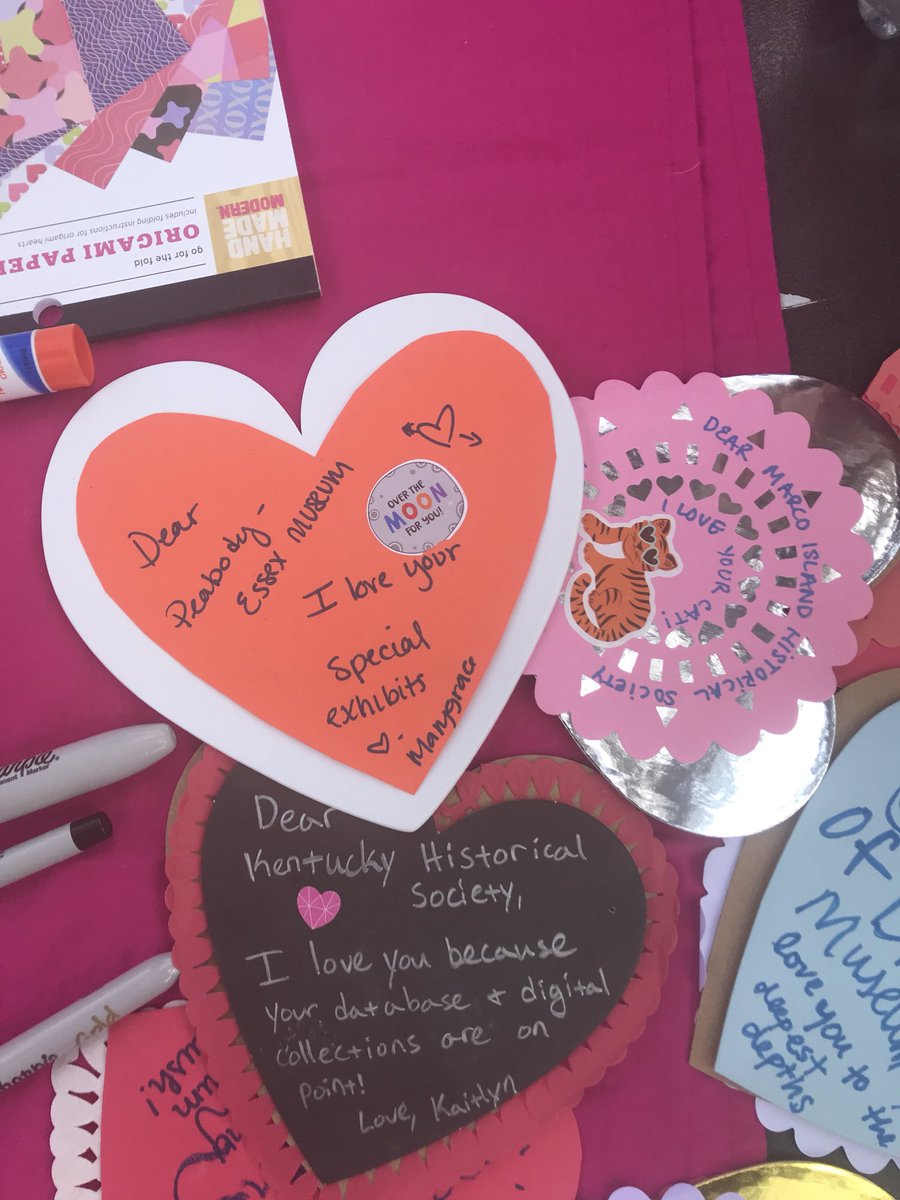 HAND
MADE
MODERN.
go for the fold
ORIGAMI PAPER
includes folding instructions for origami hearts
XOXO
Dear
Peabody-
Essex Museum
OVER THE
MOON
FOR YOU!
I love your
special
exhibits
♡ -Marygrace
DEAR MARCO ISLAND HISTORICAL SOCIETY
I LOVE YOUR CAT!
Dear
Kentucky Historical
Society,
I love you because
your database & digital
collections are on
point!
Love, Kaitlyn
of
Museum
love you to
deepest
depths
the
Permanent Marker
gold